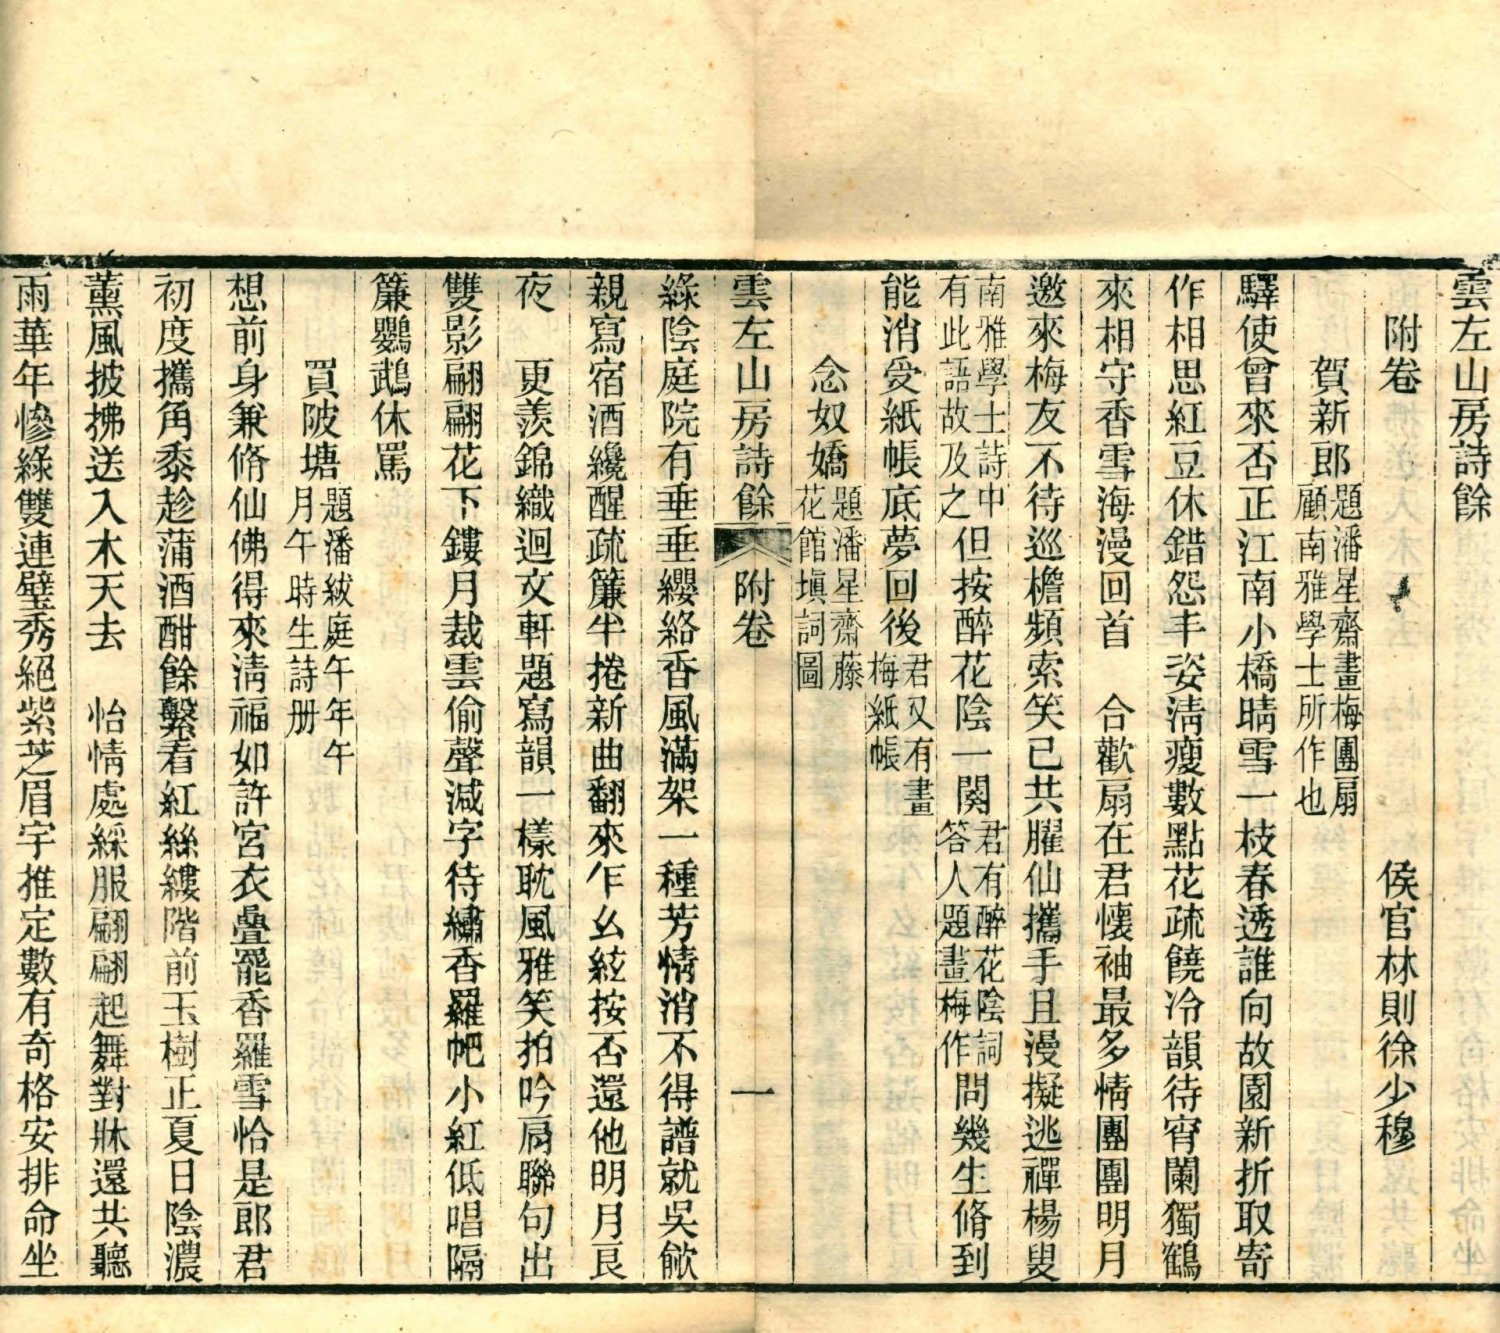 雲左山房詩餘
附卷　侯官林則徐少穆
賀新郎
題潘星齋畫梅團扇
顧南雅學士所作也
驛使曾來否正江南小橋晴雪一枝春透誰向故園新折取寄
作相思紅豆休錯怨丰姿淸瘦數點花疏饒冷韻待宵闌獨鶴
來相守香雪海漫回首　合歡扇在君懷袖最多情團團明月
邀來梅友不待巡檐頻索笑已共臞仙攜手且漫擬逃禪楊叟
南雅學士詩中
有此語故及之
但按醉花陰一闋
君有醉花陰詞
答人題畫梅作
問幾生脩到
能消受紙帳底夢回後
君又有畫
梅紙帳
念奴嬌
題潘星齋藤
花館塡詞圖
雲左山房詩餘　附卷　一
綠陰庭院有垂垂纓絡香風滿架一種芳情消不得譜就吳歈
親寫宿酒纔醒疏簾半捲新曲翻來乍幺絃按否還他明月良
夜　更羨錦織迴文軒題寫韻一樣耽風雅笑拍吟肩聯句出
雙影翩翩花下鏤月裁雲偷聲減字待繡香羅帊小紅低唱隔
簾鸚鵡休罵
買陂塘
題潘紱庭午年午
月午時生詩册
想前身兼脩仙佛得來淸福如許宮衣疊罷香羅雪恰是郎君
初度攜角黍趁蒲酒酣餘繫看紅絲縷階前玉樹正夏日陰濃
薰風披拂送入木天去　怡情處綵服翩翩起舞對牀還共聽
雨華年慘綠雙連璧秀絕紫芝眉宇推定數有奇格安排命坐